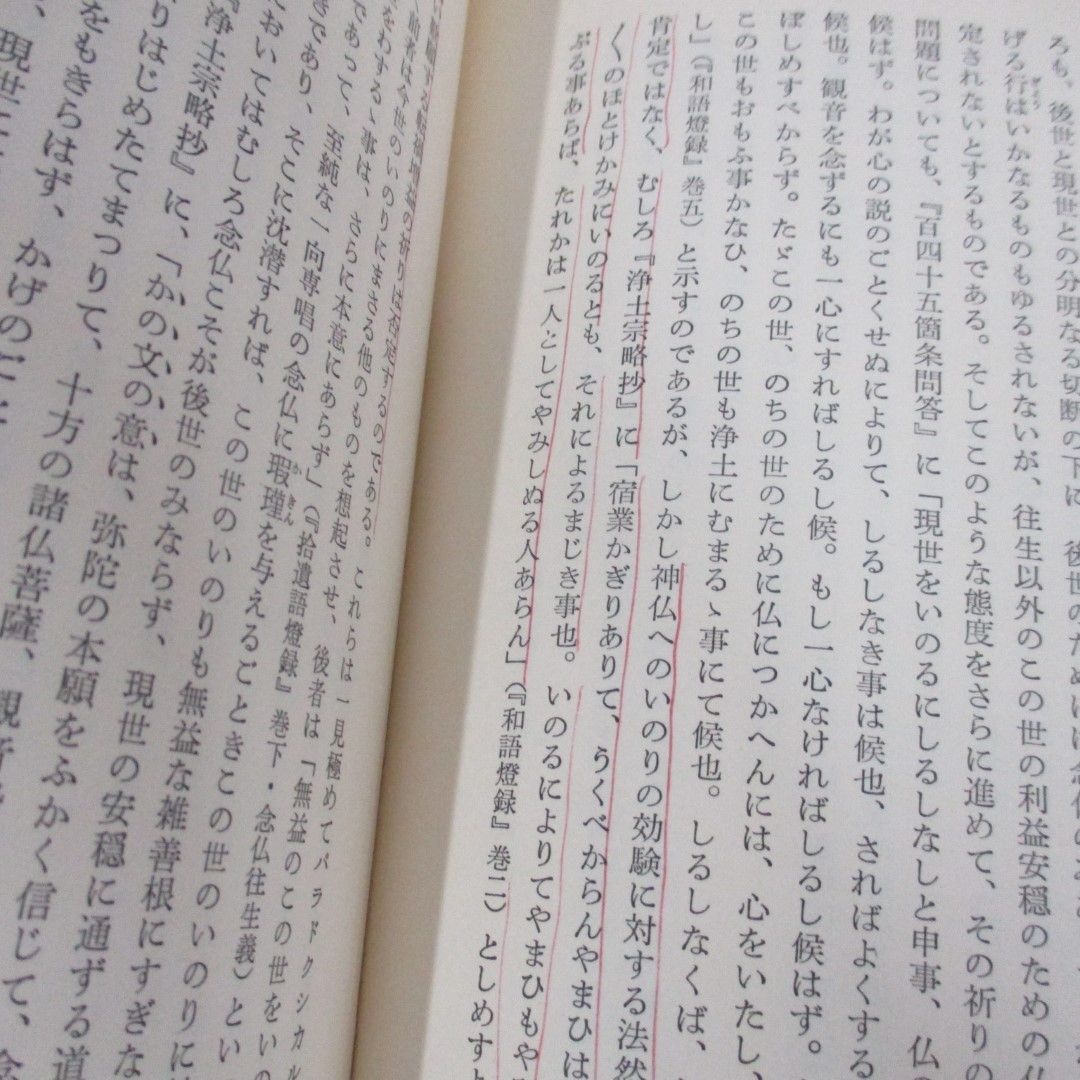 ろも、後世と現世との分明なる切断の下に、後世のために
げる行はいかなるものもゆるされないが、往生以外のこの世の利益安穏のための仏
ぎょう
定されないとするものである。そしてこのような態度をさらに進めて、その祈りの
問題についても、『百四十五箇条問答』に「現世をいのるにしるしなしと申事、仏
候はず。わが心の説のごとくせぬによりて、しるしなき事は候也、さればよくする
候也。観音を念ずるにも一心にすればしるし候。もし一心なければしるし候はず。
ぼしめすべからず。たゞこの世、のちの世のために仏につかへんには、心をいたし、
この世もおもふ事かなひ、のちの世も浄土にむまるゝ事にて候也。しるしなくば、
し」(『和語燈録』巻五)と示すのであるが、しかし神仏へのいのりの効験に対する法然
肯定ではなく、むしろ『浄土宗略抄』に「宿業かぎりありて、うくべからんやまひは
くのほとけかみにいのるとも、それによるまじき事也。いのるによりてやまひもや
ぶる事あらば、たれかは一人としてやみしぬる人あらん」(『和語燈録』巻二)としめすと
祈りは否定するのである。これらは一見極めてパラドクシカル
前者は今世のいのりにまさる他のものを想起させ、後者は「無益のこの世をいの
をわするゝ事は、さらに本意にあらず」(『拾遺語燈録』巻下・念仏往生義)とい
であって、至純な一向専唱の念仏に瑕瑾を与えるごときこの世のいのりに
かきん
きであり、そこに沈潜すれば、この世のいのりも無益な雑善根にすぎな
おいてはむしろ念仏こそが後世のみならず、現世の安穏に通ずる道
『浄土宗略抄』に、「かの文の意は、弥陀の本願をふかく信じて、念
りはじめたてまつりて、十方の諸仏菩薩、観音
をもきらはず、かげのごと
現世に